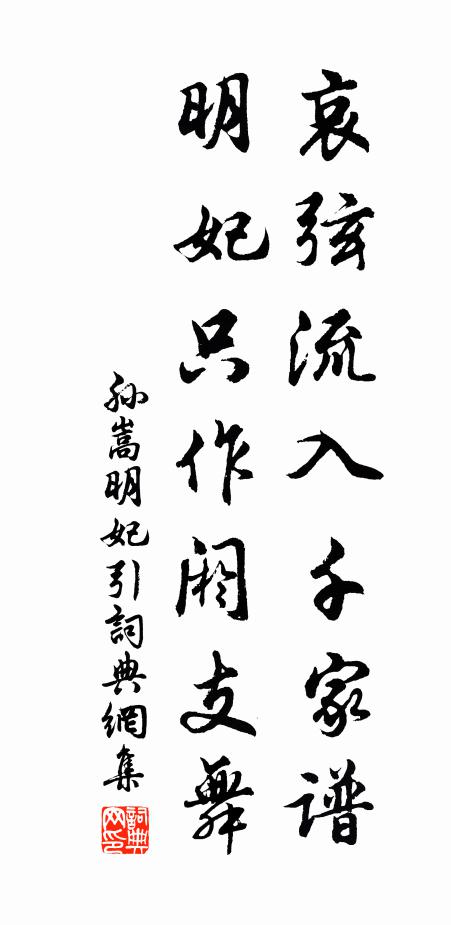 哀弦流入千家譜
明妃只作阏支舞
孙嵩明妃引詞典網集
詞典网印